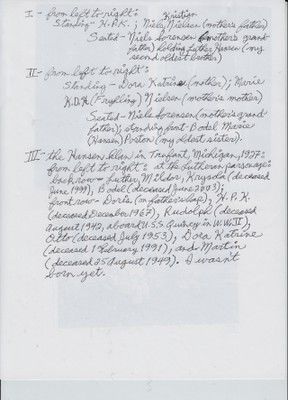 I - from left to right:
Kristian
Standing - H.P.K.; Niels Nielsen (mother's father)
Seated - Niels Sorensen (mother's grand-
father) holding Luther Hansen (my
second oldest brother)
II - from left to right:
Standing - Dora Katrine (mother); Marie
K.D.K. (Frylling) Nielsen (mother's mother)
Seated - Niels Sorensen (mother's grand-
father); standing front - Bodel Marie
(Hansen) Poston (my oldest sister).
III - the Hansen klan in Trufant, Michigan, 1927:
from left to right: at the Lutheran parsonage
back row - Luther, Mildor, Krysola (deceased
June 1999), Bodel (deceased June 2003);
front row - Doris (on father's lap), H.P.K.
(deceased December 1967), Rudolph (deceased
August 1942, aboard U.S.S. Quincy in W.W.II),
Otto (deceased July 1953), Dora Katrine
(deceased 1 February 1991), and Martin
(deceased 25 August 1949). I wasn't
born yet.